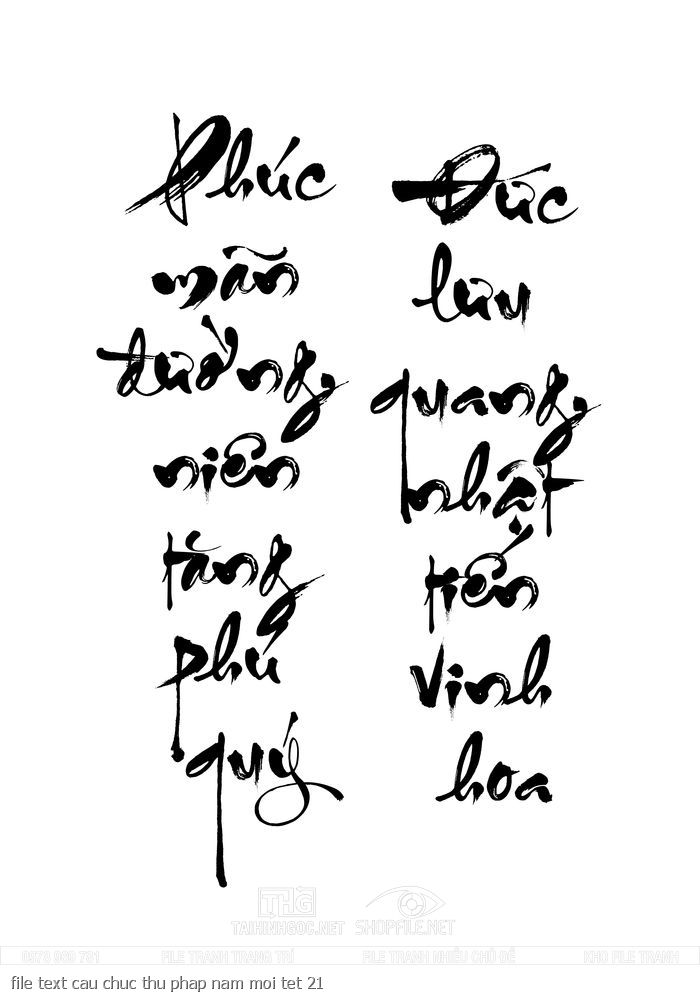 Phúc
mãn
đường
niên
tăng
phú
quý
Đức
lưu
quang
nhật
tiến
vinh
hoa
THG
TAIHINHGOC.NET
SHOPFILE.NET
FILE TRANH TRANG TRÍ
FILE TRANH NHIỀU CHỦ ĐỀ
KHO FILE TRANH
file text cau chuc thu phap nam moi tet 21